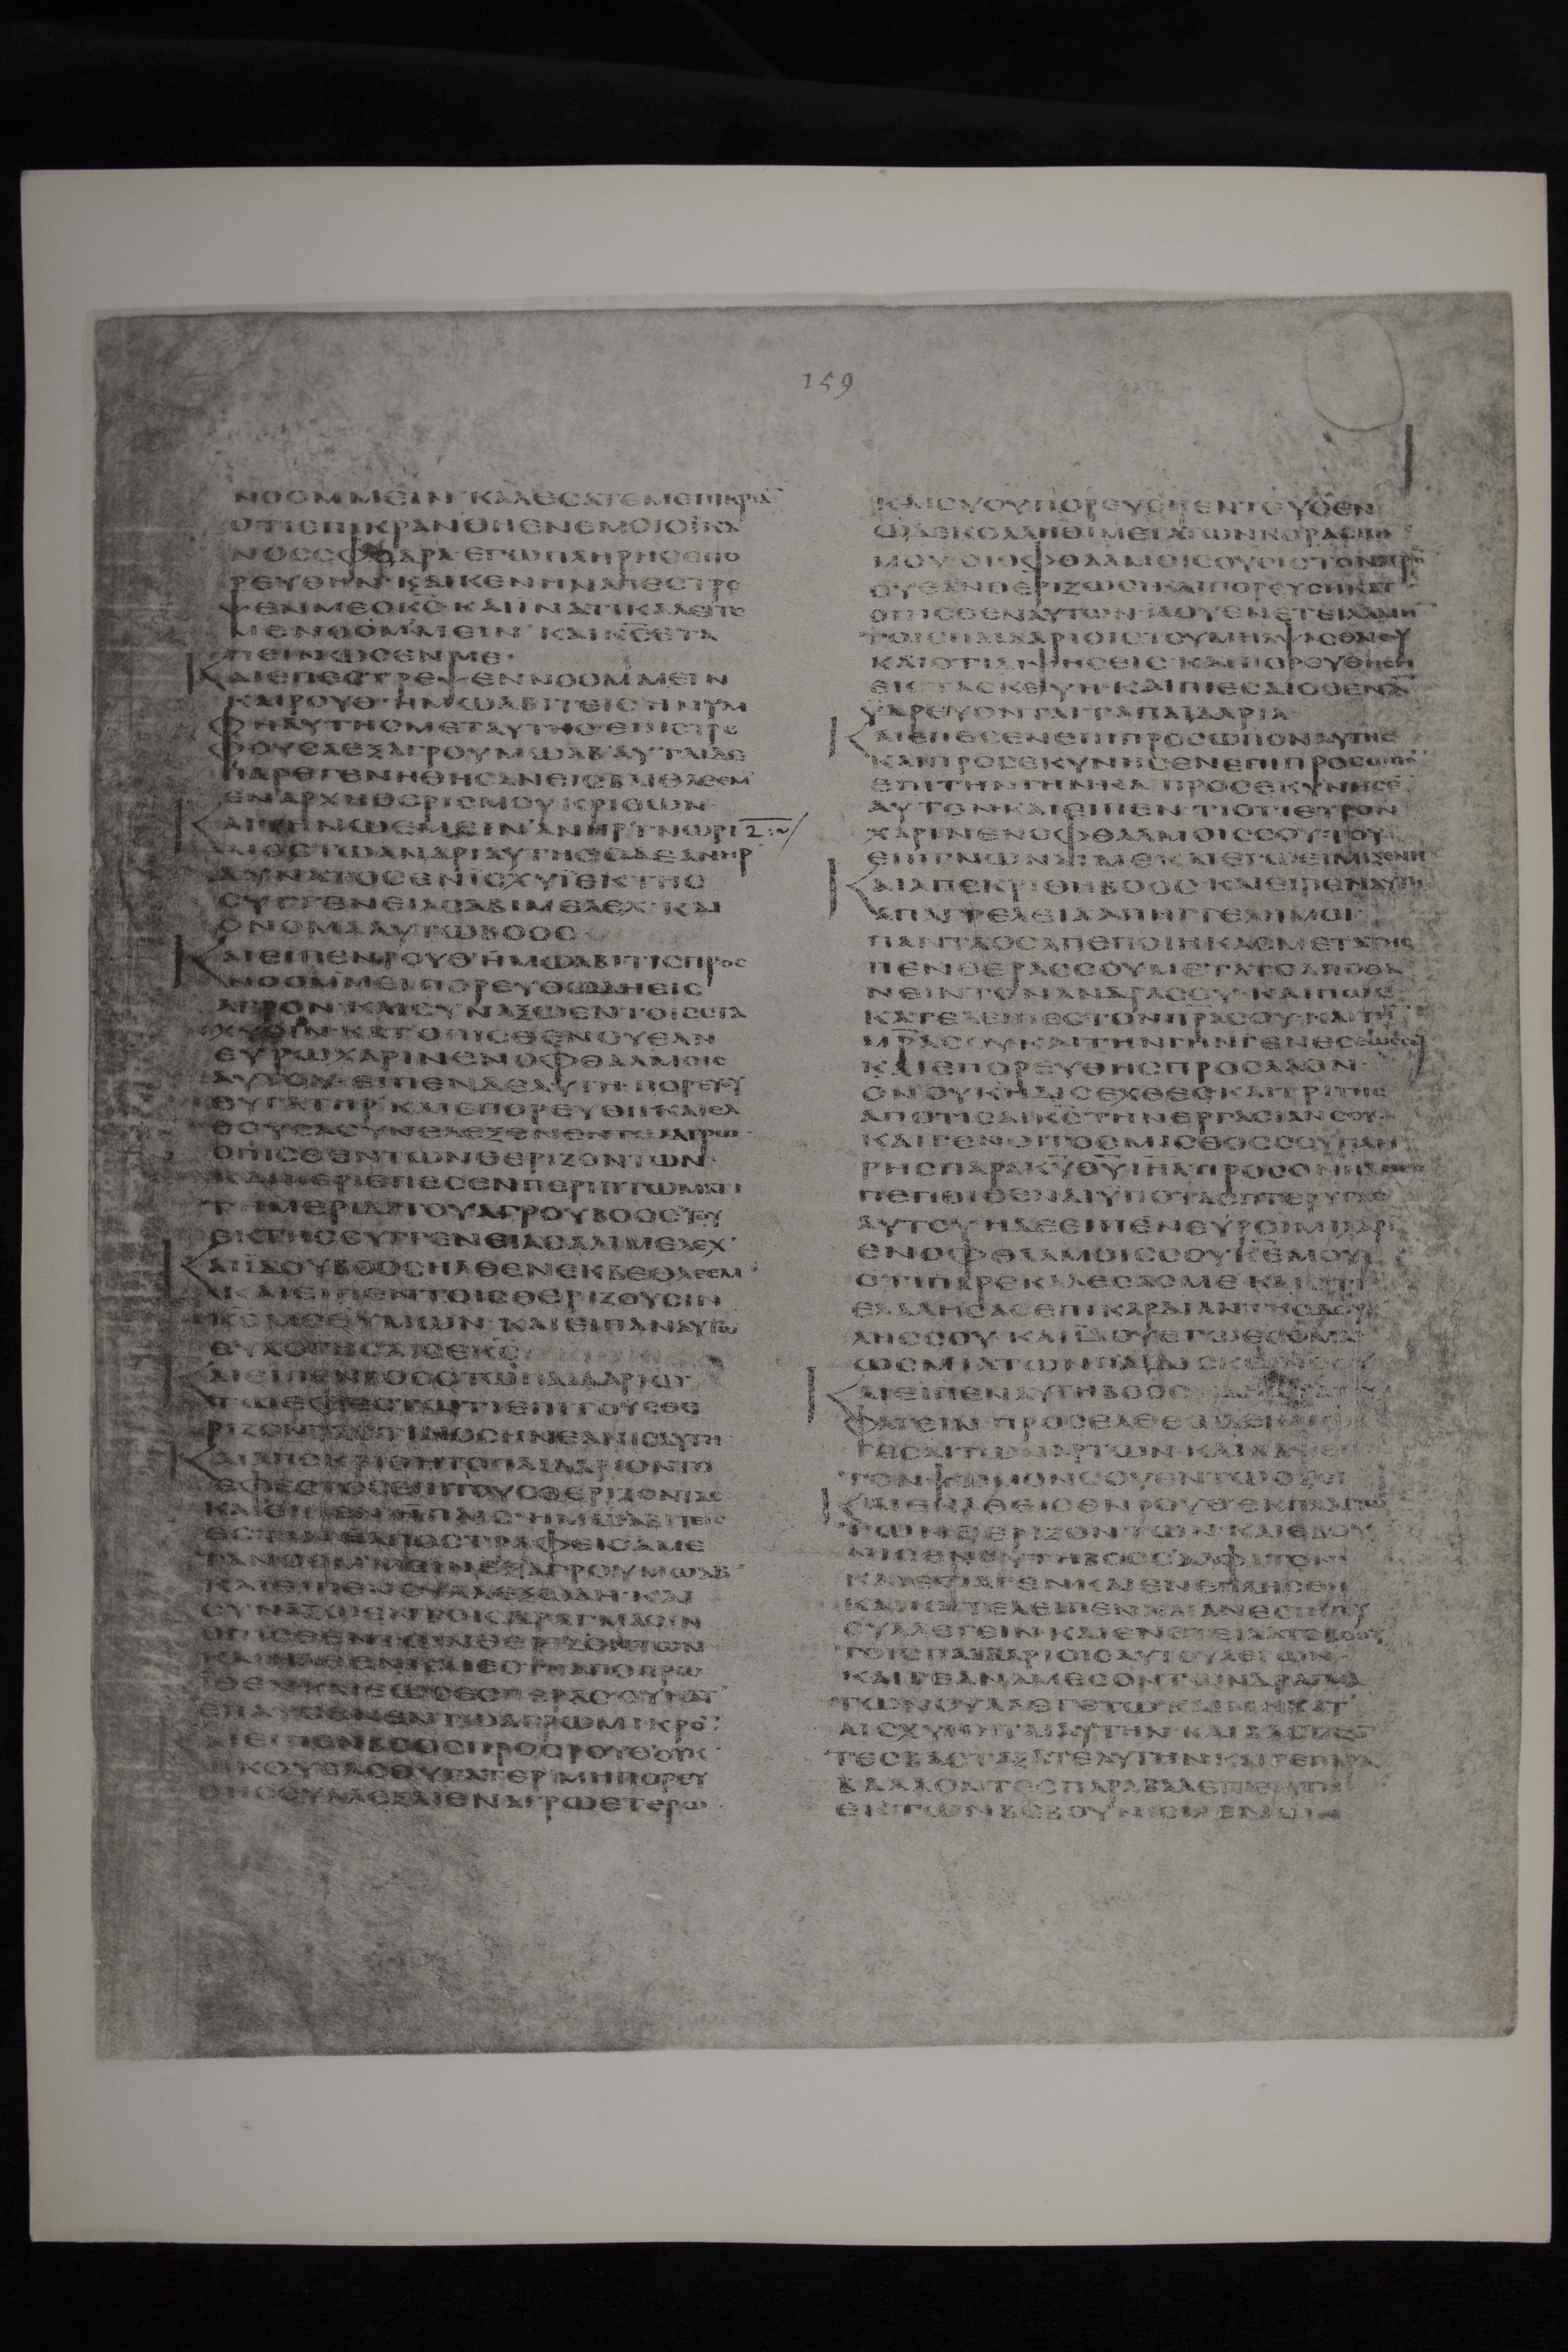 159
ΝΟΟΜΜΕΙΝ ΚΑΛΕϹΑΤΕΜΕΠΙΚΡΑ̅
ΟΤΙΕΠΙΚΡΑΝΘΗΕΝΕΜΟΙΟΪΚΑ
ΝΟϹϹΦΟΔΡΑ ΕΓΩΠΛΗΡΗϹΕΠΟ
ΡΕΥΘΗΝ ΚΑΙΚΕΝΗΝΑΠΕϹΤΡΕ
ΨΕΝΜΕΟΚ̅Ϲ̅ ΚΑΙΪΝΑΤΙΚΑΛΕΙΤΕ
ΜΕΝΟΟΜΜΕΙΝ ΚΑΙΚ̅Ϲ̅ΕΤΑ
ΠΕΙΝΩϹΕΝΜΕ
ΚΑΙΕΠΕϹΤΡΕΨΕΝΝΟΟΜΜΕΙΝ
ΚΑΙΡΟΥΘ ΗΜΩΑΒΙΤΕΙϹΗΝΥΜ
ΦΗΑΥΤΗϹΜΕΤΑΥΤΗϹ ΕΠΙϹΤΡΕ
ΦΟΥϹΑΙΕΞΑΓΡΟΥΜΩΑΒ ΑΥΤΑΙΔΕ
ΠΑΡΕΓΕΝΗΘΗϹΑΝΕΙϹΒΑΙΘΛΕΕΜ
ΕΝΑΡΧΗΘΕΡΙϹΜΟΥΚΡΙΘΩΝ
ΚΑΙΤΗΝΩΕΜΕΙΝΑΝΗΡΓΝΩΡΙ 2
ΜΟϹΤΩΑΝΔΡΙΑΥΤΗϹΟΔΕΑΝΗΡ
ΔΥΝΑΤΟϹΕΝΪϹΧΥΪΕΚΤΗϹ
ϹΥΓΓΕΝΕΙΑϹΑΒΙΜΕΛΕΧ ΚΑΙ
ΟΝΟΜΑΑΥΤΩΒΟΟϹ
ΚΑΙΕΙΠΕΝΡΟΥΘΗΜΩΑΒΙΤΙϹΠΡΟϹ
ΝΟΟΜΜΕΙΠΟΡΕΥΘΩΔΗΕΙϹ
ΑΓΡΟΝ ΚΑΙϹΥΝΑΞΩΕΝΤΟΙϹϹΤΑ
ΧΥϹΙΝ ΚΑΤΟΠΙϹΘΕΝΟΥΕΑΝ
ΕΥΡΩΧΑΡΙΝΕΝΟΦΘΑΛΜΟΙϹ
ΑΥΤΟΥ ΕΙΠΕΝΔΕΑΥΤΗ ΠΟΡΕΥΟΥ
ΘΥΓΑΤΗΡ ΚΑΙΕΠΟΡΕΥΘΗΚΑΙΕΛ
ΘΟΥϹΑϹΥΝΕΛΕΞΕΝΕΝΤΩΑΓΡΩ
ΟΠΙϹΘΕΝΤΩΝΘΕΡΙΖΟΝΤΩΝ
ΚΑΙΠΕΡΙΕΠΕϹΕΝΠΕΡΙΠΤΩΜΑΤΙ
ΤΗΜΕΡΙΔΙΤΟΥΑΓΡΟΥΒΟΟϹΤΟΥ
ΕΚΤΗϹϹΥΓΓΕΝΕΙΑϹΑΛΙΜΕΛΕΧ
ΚΑΙΪΔΟΥΒΟΟϹΗΛΘΕΝΕΚΒΕΘΛΕΕΜ
ΚΑΙΕΙΠΕΝΤΟΙϹΘΕΡΙΖΟΥϹΙΝ
Κ̅Ϲ̅ΜΕΘΥΜΩΝ ΚΑΙΕΙΠΑΝΑΥΤΩ
ΕΥΛΟΓΗϹΑΙϹΕΚ̅Ϲ̅
ΚΑΙΕΙΠΕΝΒΟΟϹΤΩΠΑΙΔΑΡΙΩΑΥ
ΤΩΕΦΕϹΤΩΤΙΕΠΙΤΟΥϹΘΕ
ΡΙΖΟΝΤΑϹΤΙΝΟϹΗΝΕΑΝΙϹΑΥΤΗ
ΚΑΙΑΠΕΚΡΙΘΗΤΟΠΑΙΔΑΡΙΟΝΤΟ
ΕΦΕϹΤΟϹΕΠΙΤΟΥϹΘΕΡΙΖΟΝΤΑϹ
ΚΑΙΕΙΠΕΝΗΠΑΙϹ ΗΜΩΑΒΙΤΙϹ
ΕϹΤΙΝΗΑΠΟϹΤΡΑΦΕΙϹΑΜΕ
ΤΑΝΟΕΜΜΕΙΝΕΞΑΓΡΟΥΜΩΑΒ
ΚΑΙΕΙΠΕΝϹΥΛΛΕΞΩΔΗ ΚΑΙ
ϹΥΝΑΞΩΕΝΤΟΙϹΔΡΑΓΜΑϹΙΝ
ΟΠΙϹΘΕΝΤΩΝΘΕΡΙΖΟΝΤΩΝ
ΚΑΙΗΛΘΕΝΚΑΙΕϹΤΗΑΠΟΠΡΩ
ΪΘΕΝΚΑΙΕΩϹΕϹΠΕΡΑϹΟΥΚΑΤ
ΕΠΑΥϹΕΝΕΝΤΩΑΓΡΩΜΙΚΡΟ̅
ΚΑΙΕΙΠΕΝΒΟΟϹΠΡΟϹΡΟΥΘΟΥΚ
ΗΚΟΥϹΑϹΘΥΓΑΤΕΡ ΜΗΠΟΡΕΥ
ΘΗϹϹΥΛΛΕΞΑΙΕΝΑΓΡΩΕΤΕΡΩ
ΚΑΙϹΥΟΥΠΟΡΕΥϹΗΕΝΤΕΥΘΕΝ
ΩΔΕΚΟΛΛΗΘΙΜΕΤΑΤΩΝΚΟΡΑϹΙΩ̅
ΜΟΥ ΟΙΟΦΘΑΛΜΟΙϹΟΥΕΙϹΤΟΝΑΓΡΟ̅
ΟΥΕΑΝΘΕΡΙΖΩϹΙΚΑΙΠΟΡΕΥϹΗΚΑΤ
ΟΠΙϹΘΕΝΑΥΤΩΝ ΪΔΟΥΕΝΕΤΕΙΛΑΜΗ̅
ΤΟΙϹΠΑΙΔΑΡΙΟΙϹΤΟΥΜΗΑΨΑϹΘΑΙϹΟΥ
ΚΑΙΟΤΙΔΙΨΗϹΕΙϹ ΚΑΙΠΟΡΕΥΘΗϹΗ
ΕΙϹΤΑϹΚΕΥΗ ΚΑΙΠΙΕϹΑΙΟΘΕΝΑ̅
ΥΔΡΕΥΟΝΤΑΙΤΑΠΑΙΔΑΡΙΑ
ΚΑΙΕΠΕϹΕΝΕΠΙΠΡΟϹΩΠΟΝΑΥΤΗϹ
ΚΑΙΠΡΟϹΕΚΥΝΗϹΕΝΕΠΙΠΡΟϹΩΠΟ̅
ΕΠΙΤΗΝΓΗΝΚΑΙΠΡΟϹΕΚΥΝΗϹΕ̅
ΑΥΤΟΝΚΑΙΕΙΠΕΝ ΤΙΟΤΙΕΥΡΟΝ
ΧΑΡΙΝΕΝΟΦΘΑΛΜΟΙϹϹΟΥΤΟΥ
ΕΠΙΓΝΩΝΑΙΜΕΚΑΙΕΓΩΕΙΜΙΞΕΝΗ
ΚΑΙΑΠΕΚΡΙΘΗΒΟΟϹ ΚΑΙΕΙΠΕΝΑΥΤΗ
ΑΠΑΓΓΕΛΕΙΑΑΠΗΓΓΕΛΗΜΟΙ
ΠΑΝΤΑΟϹΑΠΕΠΟΙΗΚΑϹΜΕΤΑΤΗϹ
ΠΕΝΘΕΡΑϹϹΟΥΜΕΤΑΤΟΑΠΟΘΑ
ΝΕΙΝΤΟΝΑΝΔΡΑϹΟΥ ΚΑΙΠΩϹ
ΚΑΤΕΛΕΙΠΕϹΤΟΝΠΡΑϹΟΥΚΑΙΤΗ̅
Μ̅Ρ̅Α̅ϹΟΥΚΑΙΤΗΝΓΗΝΓΕΝΕϹΕΩϹϹΟΥ
ΚΑΙΕΠΟΡΕΥΘΗϹΠΡΟϹΛΑΟΝ
ΟΝΟΥΚΗΔΙϹΕΧΘΕϹΚΑΙΤΡΙΤΗϹ
ΑΠΟΤΙϹΑΙΚ̅Ϲ̅ΤΗΝΕΡΓΑϹΙΑΝϹΟΥ
ΚΑΙΓΕΝΟΙΤΟΟΜΙϹΘΟϹϹΟΥΠΛΗ
ΡΗϹΠΑΡΑΚ̅Υ̅Θ̅Υ̅Ι̅Η̅Λ̅ΠΡΟϹΟΝ
ΠΕΠΟΙΘΕΝΑΙΫΠΟΤΑϹΠΤΕΡΥΓΑϹ
ΑΥΤΟΥ ΗΔΕΕΙΠΕΝΕΥΡΟΙΜΙΧΑΡΙ̅
ΕΝΟΦΘΑΛΜΟΙϹϹΟΥΚ̅Ε̅ΜΟΥ
ΟΤΙΠΑΡΕΚΑΛΕϹΑϹΜΕ ΚΑΙΟΤΙ
ΕΛΑΛΗϹΑϹΕΠΙΚΑΡΔΙΑΝΤΗϹΔΟΥ
ΛΗϹϹΟΥ ΚΑΙΪΔΟΥΕΓΩΕϹΟΜΑΙ
ΩϹΜΙΑΤΩΝΠΑΙΔΙϹΚΩΝϹΟΥ
ΚΑΙΕΙΠΕΝΑΥΤΗΒΟΟϹ
ΦΑΓΕΙΝ ΠΡΟϹΕΛΘΕΩΔΕΚΑΙΦΑ
ΓΕϹΑΙΤΩΝΑΡΤΩΝ ΚΑΙΒΑΨΕΙϹ
ΤΟΝΨΩΜΟΝϹΟΥΕΝΤΩΟΞΕΙ
ΚΑΙΕΚΑΘΕΙϹΕΝΡΟΥΘ ΕΚΠΛΑΓΙΩ̅
ΤΩΝΘΕΡΙΖΟΝΤΩΝ ΚΑΙΕΒΟΥ
ΝΙϹΕΝΑΥΤΗΒΟΟϹΑΛΦΙΤΟΝ
ΚΑΙΕΦΑΓΕΝΚΑΙΕΝΕΠΛΗϹΘΗ
ΚΑΙΚΑΤΕΛΕΙΠΕΝ ΚΑΙΑΝΕϹΤΗΤΟΥ
ϹΥΛΛΕΓΕΙΝ ΚΑΙΕΝΕΤΕΙΛΑΤΟΒΟΟϹ
ΤΟΙϹΠΑΙΔΑΡΙΟΙϹΑΥΤΟΥΛΕΓΩΝ
ΚΑΙΓΕΑΝΑΜΕϹΟΝΤΩΝΔΡΑΓΜΑ
ΤΩΝϹΥΛΛΕΓΕΤΩ ΚΑΙΜΗΚΑΤ
ΑΙϹΧΥΝΗΤΑΙΑΥΤΗΝ ΚΑΙΒΑϹΤΑΖ̅
ΤΕϹΒΑϹΤΑΞΑΤΕΑΥΤΗΝΚΑΙΓΕΠΑΡΑ
ΒΑΛΛΟΝΤΕϹΠΑΡΑΒΑΛΕΙΤΕΑΥΤΗ
ΕΚΤΩΝΒΕΒΟΥΝΙϹΜΕΝΩΝ